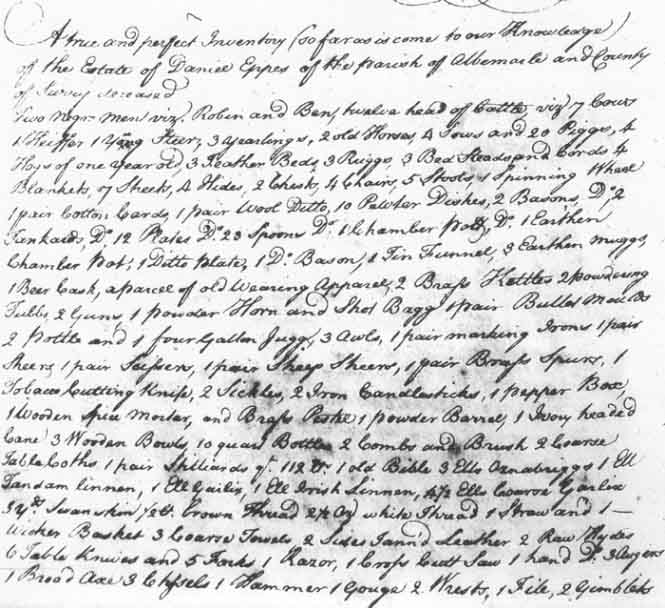 A true and perfect Inventory (so far as is come to our Knowledge)
of the Estate of Daniel Eppes of the parish of Albemarle and County
of Surry deceased
Two negr. Men viz. Robin and Ben, twelve head of Cattle viz 7 Cows
1 Heiffer 1 Yung Steer, 3 Yearlings, 2 old Horses, 4 Sows and 20 Piggs, 4
Hogs of one Year old, 3 Feather Beds, 3 Ruggs, 3 Bed Steads and Cords 4
Blankets, 7 Sheets, 4 Hides, 2 Chests, 4 Chairs, 5 Stools, 1 Spinning Wheel
1 pair Cotton Cards, 1 pair Wool Ditto, 10 Pewter Dishes, 2 Basons, Do. 2
Tankards, Do. 12 Plates Do. 23 Spoons Do. 1 Chamber Pott, Do. 1 Earthen
Chamber Pot, 1 Ditto Plate, 1 Do. Bason, 1 Tin Funnel, 3 Earthen Muggs,
1 Beer Cask, a parcel of old Wearing Apparel, 2 Brass Kettles 2 powdering
Tubbs, 2 Guns 1 powder Horn and Shot Bagg 1 pair Bullet Moulds
2 Pottle and 1 four Gallon Jugg, 3 Awls, 1 pair marking Irons 1 pair
Sheers 1 pair Scissers, 1 pair Sheep Sheers, 1 pair Brass Spurs, 1
Tobacco Cutting Knife, 2 Sickles, 2 Iron Candlesticks, 1 pepper Box,
1 Wooden Spice Mortar, and Brass Pestle 1 powder Barrel, 1 Ivory headed
Cane 3 Wooden Bowls, 10 quart Bottles 2 Combs and Brush 2 Coarse
Table Cloths 1 pair Stilliards qt. 112 lb. 1 old Bible 3 Ells Oznabriggs 1 Ell
Tandam linnen, 1 Ell Garlix, 1 Ell Irish Linnen, 4 1/2 Ells Coarse Garlix
3 Yds Swanskin 1/2 lb. brown Thread 2 1/2 Oz white Thread 1 Straw and 1 —
Wicker Basket 3 Coarse Towels 2 Sides Tann'd Leather 2 Raw Hydes
6 Table Knives and 5 Forks 1 Razor, 1 Cross Cutt Saw 1 hand Do. 3 Augers
1 Broad Axe 3 Chissels 1 Hammer 1 Gouge 2 Wrests, 1 File, 2 Gimblets